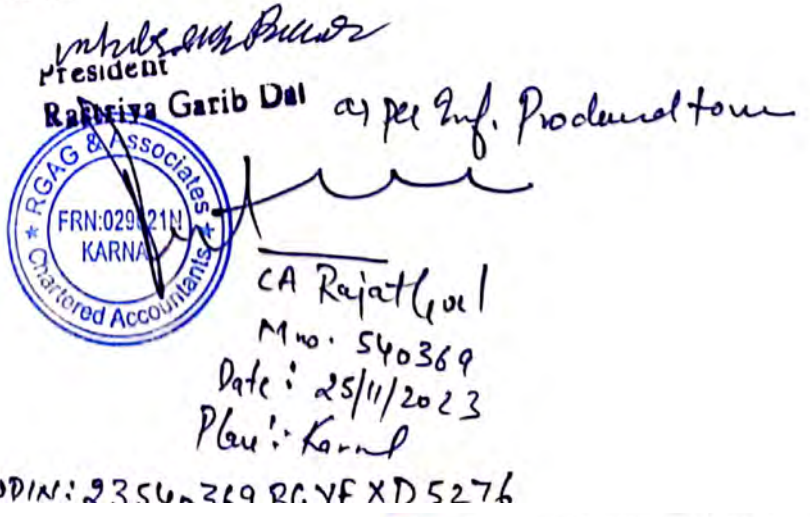 President
Rashtriya Garib Dal
as per Inf. Produced to us
RGAG & Associates
FRN:029 21N
KARNA
Chartered Accountants
CA Rajat Goel
M no. 540369
Date: 25/11/2023
Place: Karnal
UDIN: 23540369BGVFXD5276